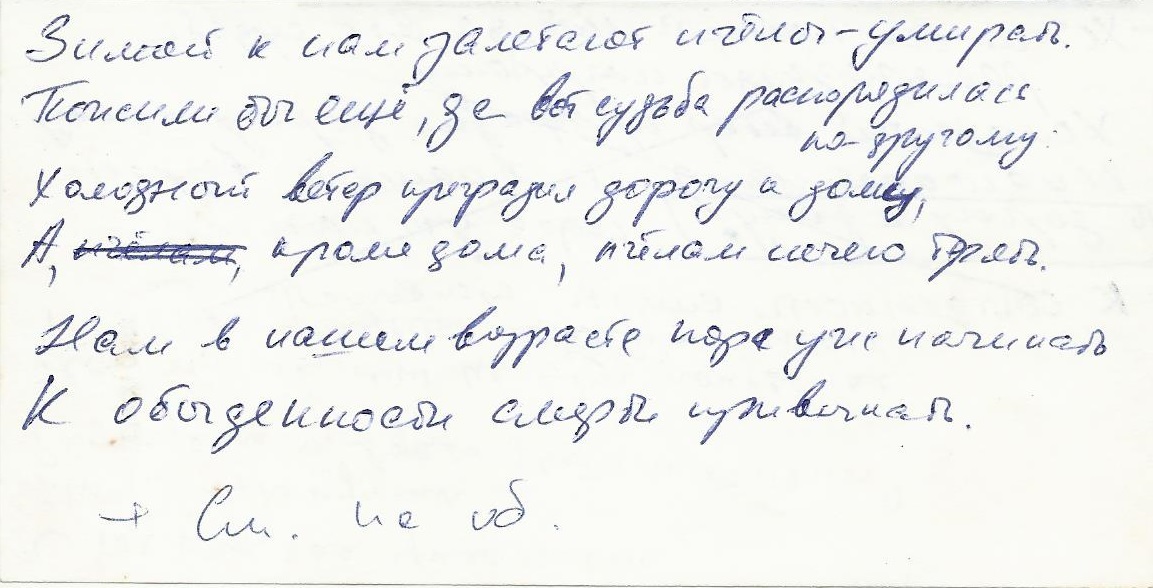 Зимой к нам залетают пчёлы – умирать.
Пожили бы ещё, да вот судьба распорядилась
по-другому:
Холодный ветер преградил дорогу к дому,
А, пчёлам, кроме дома, пчёлам нечего терять.
Нам в нашем возрасте пора уже начинать
К обыденности смерти привыкать.
+ См. на об.